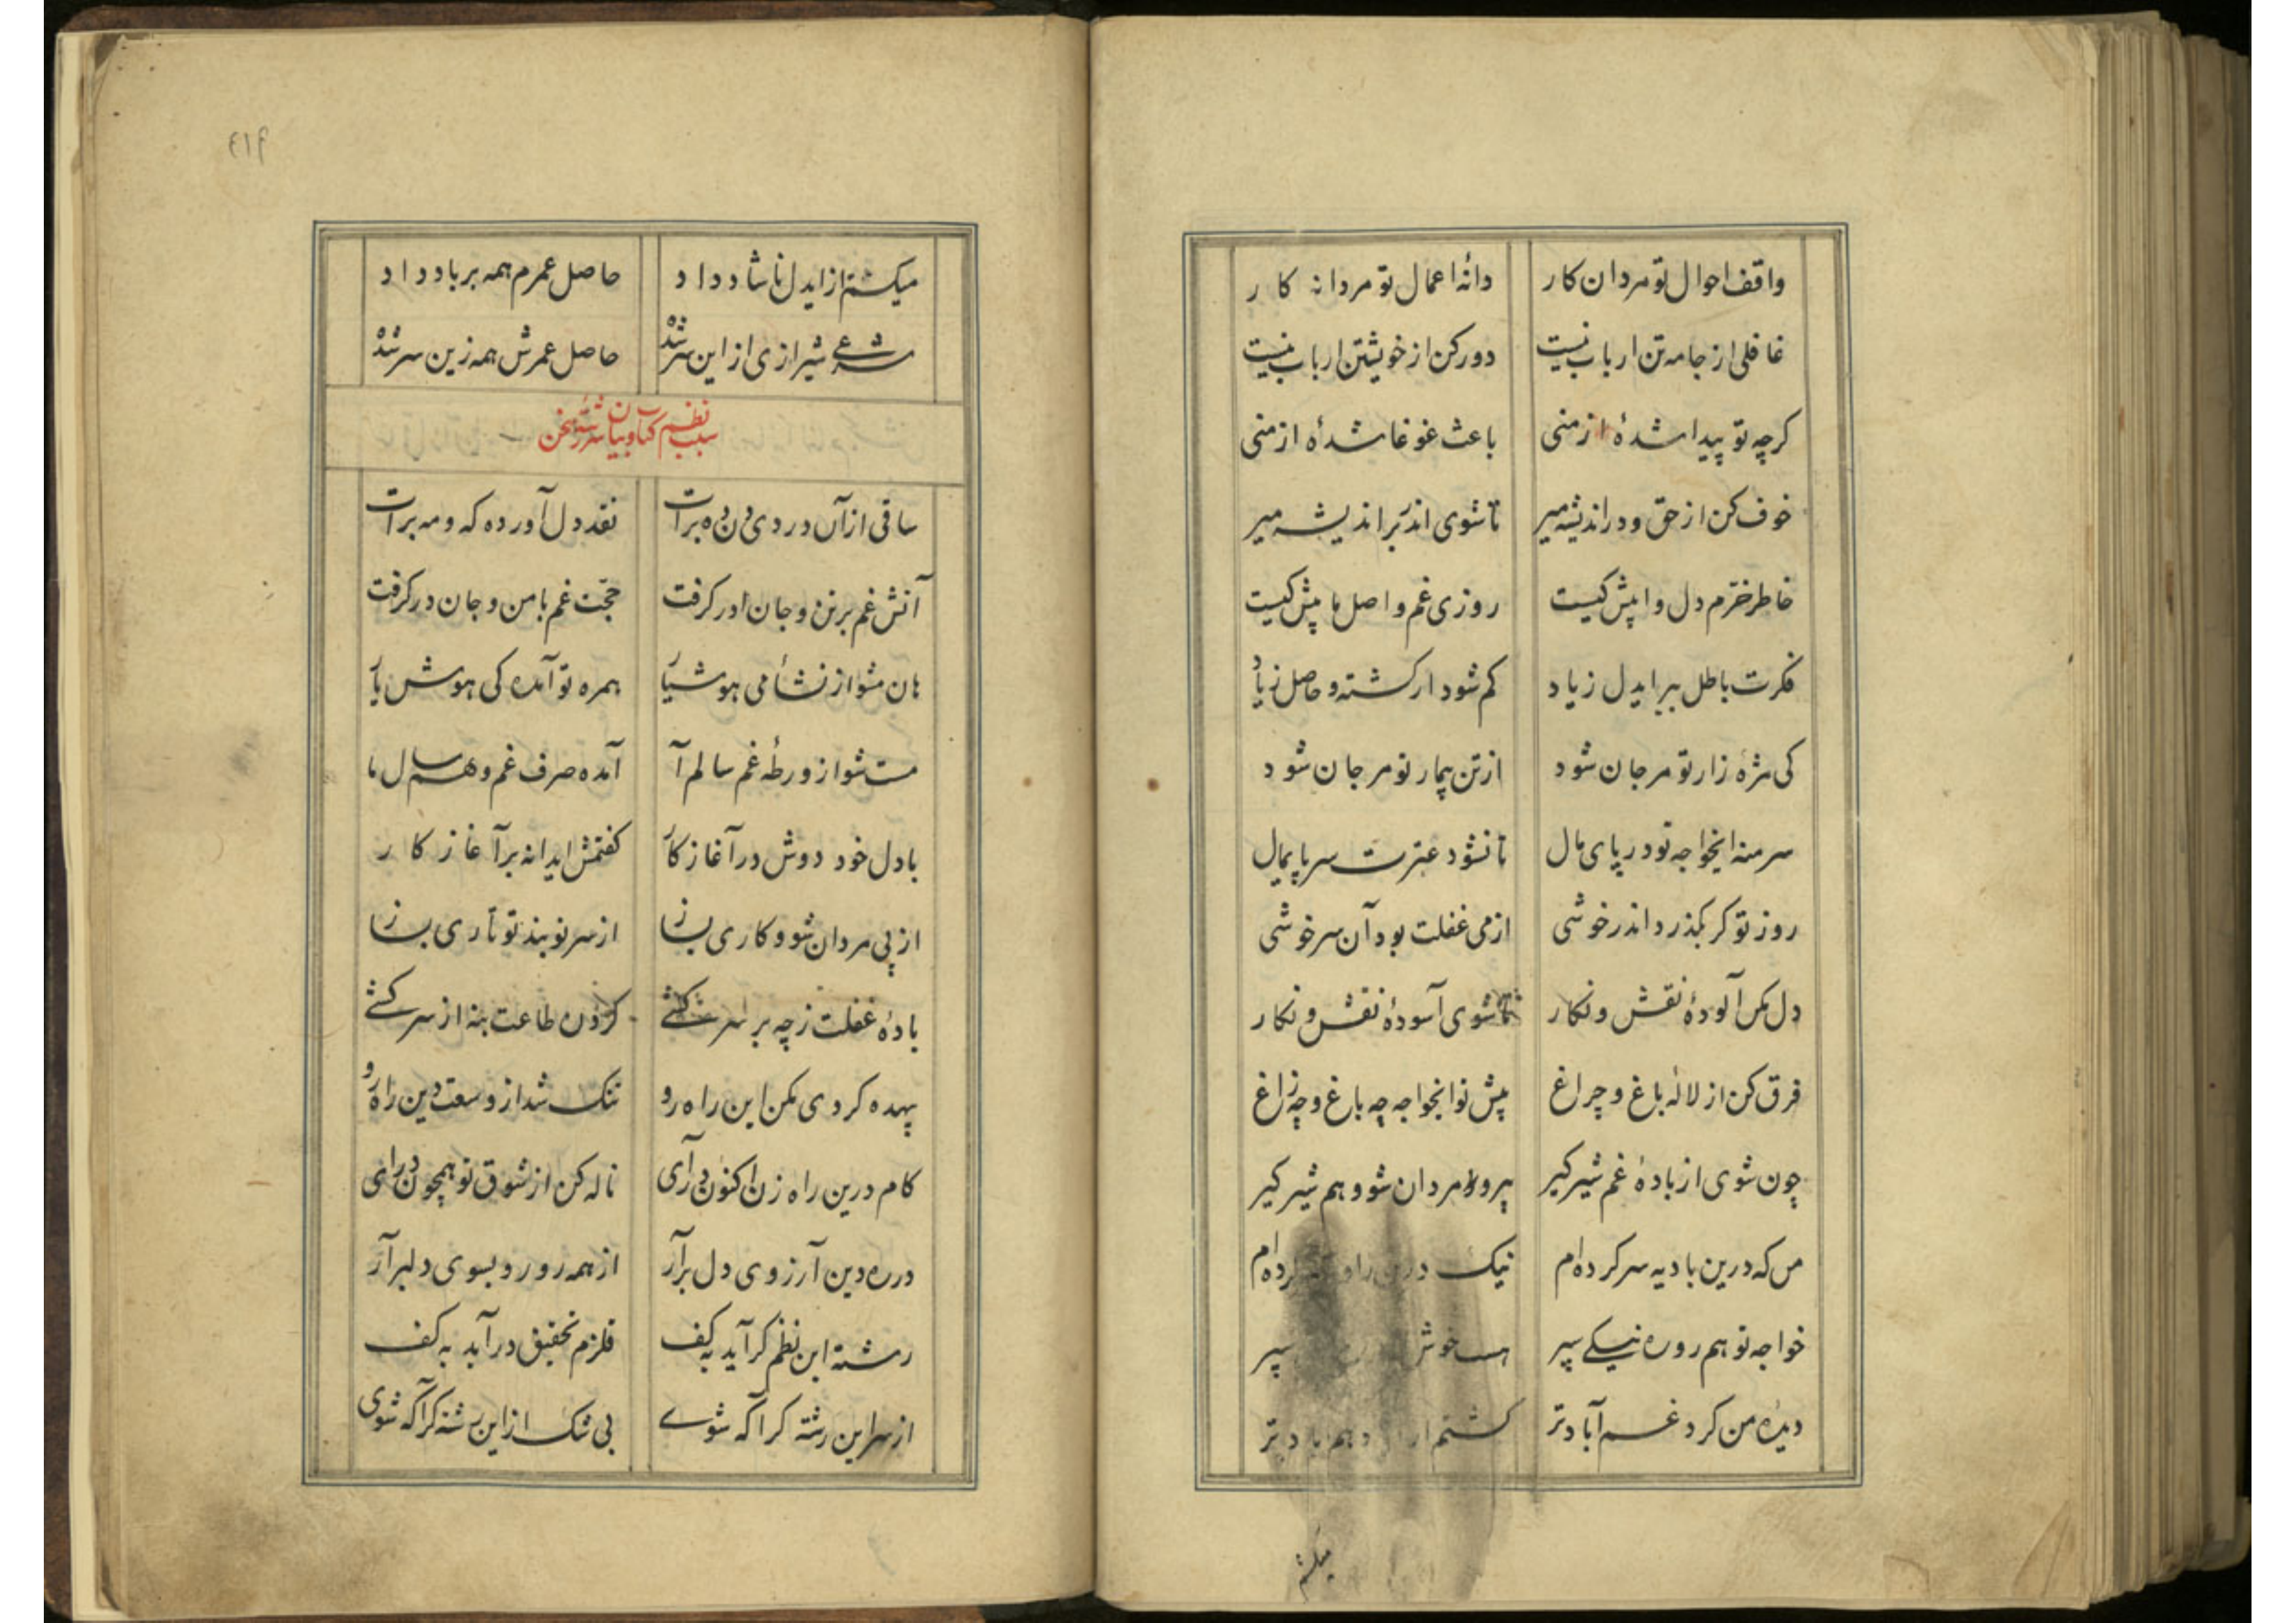 واقف احوال تو مردان کار دانهٔ اعمال تو مردانه کار
غافلی از جامه تن ار باب نیست دور کن از خویشتن ار باب نیست
کرچه تو پیدا شدهٔ از منی باعث غوغا شدهٔ از منی
خوف کن از حق و در اندیشه میر تا شوی اندر بر اندیشه میر
خاطر خرم دل وا پیش کیست روزی غم واصل ما پیش کیست
فکرت باطل ببر ایدل زیاد کم شود ار کشته و حاصل زیاد
کی مژهٔ زار تو مرجان شود از تن بیمار تو مر جان شود
سر منه ایخواجه تو در پای مال تا نشود عترت سر پایمال
روز تو کر بکذرد اندر خوشی از می غفلت بود آن سرخوشی
دل مکن آلودهٔ نقش و نکار تا شوی آسودهٔ نقش و نکار
فرق کن از لالهٔ باغ و چراغ پیش تو ایخواجه چه باغ و چه زاغ
چون شوی از بادهٔ غم شیر کیر پیرو مردان شو و هم شیر کیر
من که درین بادیه سر کرده ام نیک درین راه کرده ام
خواجه تو هم رو ره نیکی سپر هست خوش سپر
دیدهٔ من کرد غم آباد تر کشتم از و هم باد تر
میکشم
۴۱۹
میکشم از ایدل ناشاد داد حاصل عمرم همه بر باد داد
شرعی شیرازی از این سر شده حاصل عمرش همه زین سر شده
سبب نظم کتاب و بیان سررشته سخن
ساقی از آن دردی دن ده برات نقد دل آورده که و مه برات
آتش غم بر تن و جان در کرفت حجت غم با من و جان در کرفت
هان مشو از نشأ می هوشیار همره تو آمده کی هوش یار
مست شو از ورطهٔ غم سالم آ آمده صرف غم و هم سال ما
با دل خود دوش در آغاز کار کفتمش ایدانه بر آغاز کار
از پی مردان شو و کاری بساز از سر نو بند تو تاری بساز
بادهٔ غفلت ز چه بر سر کشی کردن طاعت بنه از سر کشی
بیهده کردی مکن این راه رو تنک شد از وسعت دین راه رو
کام درین راه زن اکنون درآی ناله کن از شوق تو همچون درای
در ره دین آرزوی دل برآر از همه رو رو بسوی دلبر آر
رشته این نظم کر آید به کف قلزم تحقیق در آید به کف
از سر این رشته کر آکه شوی بی شک از این رشته کر آکه شوی